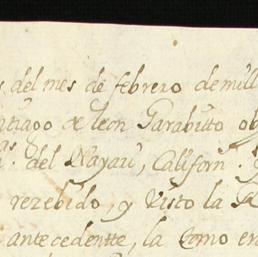 del mes de febrero de mill
tiago de leon Garabitto ob
del Nayari, Californ.
rezebido, y Visto la
antecedentte, la Como en